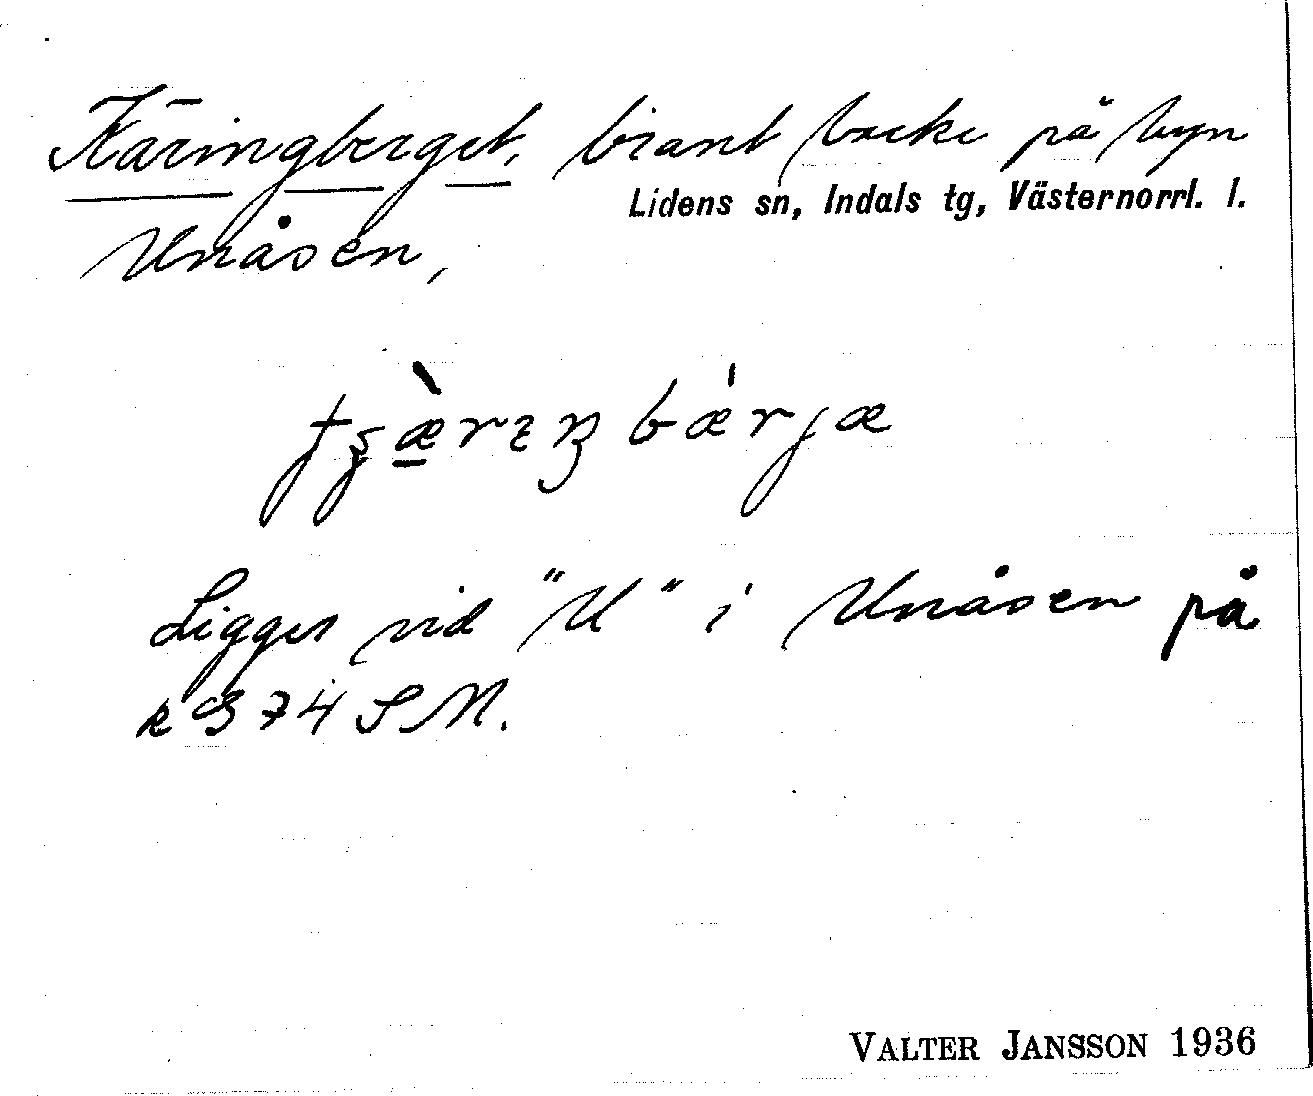 Käringberget, brant backe på byn
Lidens sn, Indals tg, Västernorrl. l.
Unåsen,
bærjæ
Ligger vid "U" i Unåsen på
k 374 SM.
VALTER JANSSON 1936